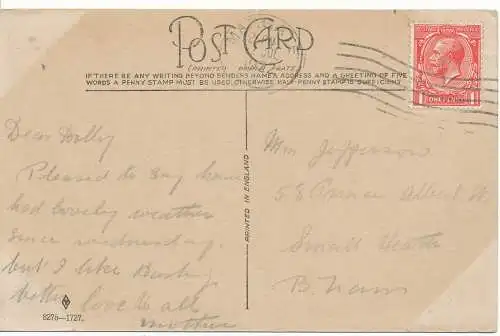 POST CARD
(PRINTED PAPER RATE)
IF THERE BE ANY WRITING BEYOND SENDERS NAME & ADDRESS AND A GREETING OF FIVE
WORDS A PENNY STAMP MUST BE USED, OTHERWISE HALF-PENNY STAMP IS SUFFICIENT
Dear Dolly
Pleased to say have
had lovely weather
since wednesday.
but I like
better love to all
mother
8275-1727.
PRINTED IN ENGLAND
ONE PENNY
Mrs Jefferson
58 Prince Albert St
Small Heath
B.ham